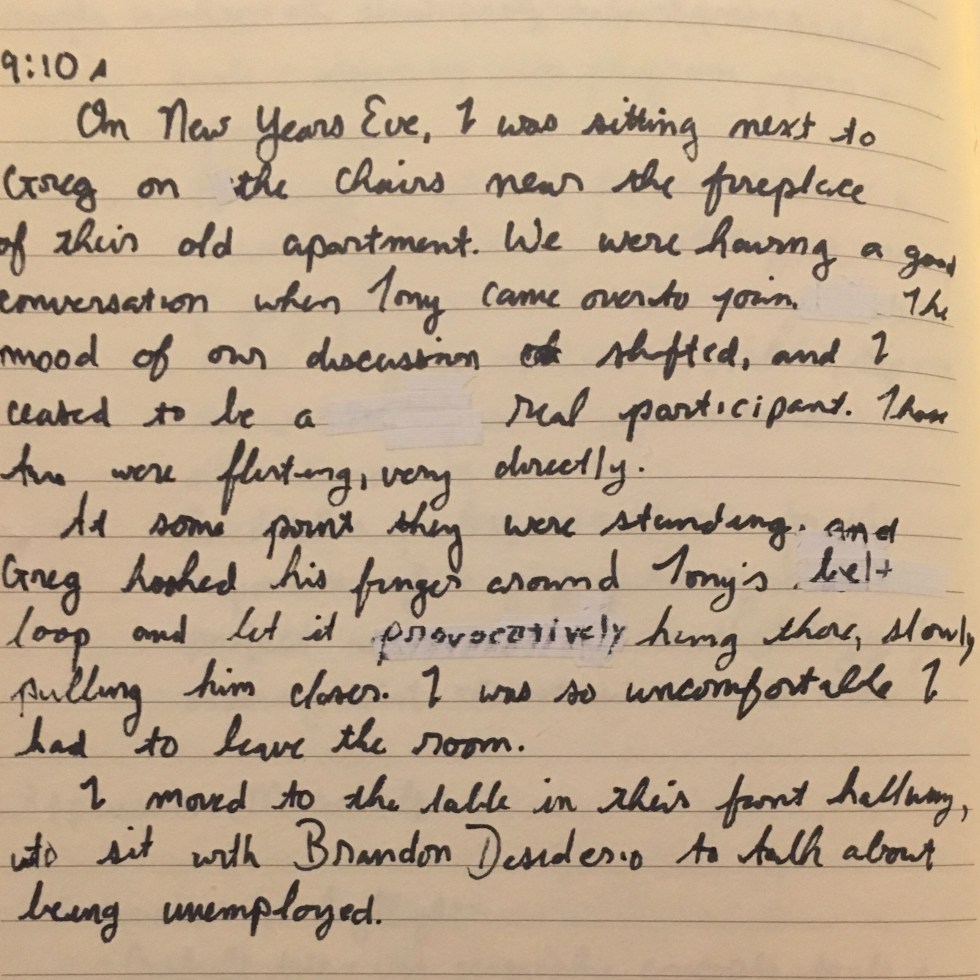 9:10 A
On New Years Eve, I was sitting next to
Greg on the chairs near the fireplace
of their old apartment. We were having a good
conversation when Tony came over to join. The
mood of our discussion shifted, and I
ceased to be a real participant. Those
two were flirting, very directly.
At some point they were standing. And
Greg hooked his finger around Tony's belt
loop and let it provocatively hang there, slowly
pulling him closer. I was so uncomfortable I
had to leave the room.
I moved to the table in their front hallway,
to sit with Brandon Desiderio to talk about
being unemployed.